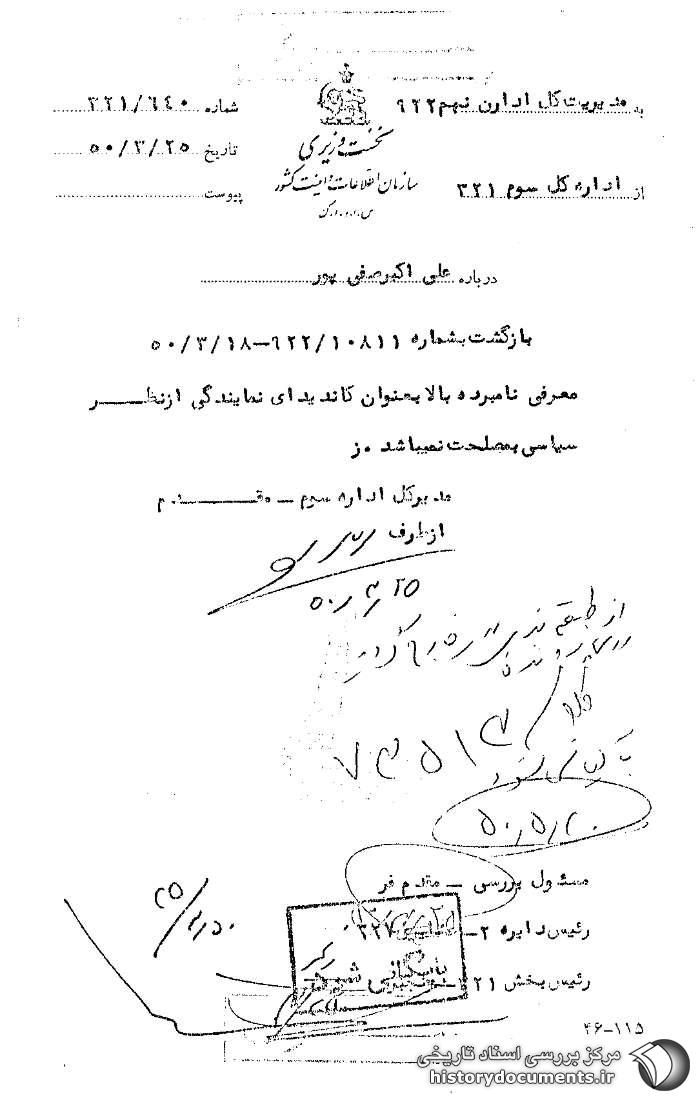 به مدیریت کل ادارن نهم ۹۲۲
شماره ۳۲۱/۶۴۰
نخست وزیری
تاریخ ۵۰/۳/۲۵
سازمان اطلاعات و امنیت کشور
س.ا.و.ا.ک
از اداره کل سوم ۳۲۱
پیوست
درباره علی اکبر صفی پور
بازگشت بشماره ۹۲۲/۱۰۸۱۱-۵۰/۳/۱۸
معرفی نامبرده بالا بعنوان کاندیدای نمایندگی از نظر
سیاسی بمصلحت نمیباشد .ز
مدیرکل اداره سوم - مقدم
از طرف
۵۰/۳/۲۵
از طبقه بندی
۷۳۵۱۳
بایگانی شود
۵۰/۵/۲۰
مسئول بررسی - مقدم فر
۲۵/۳/۵۰
رئیس دایره ۲-۳۲۷
بایگانی شد
رئیس بخش ۳۲۱
۴۶-۱۱۵
مرکز بررسی اسناد تاریخی
historydocuments.ir